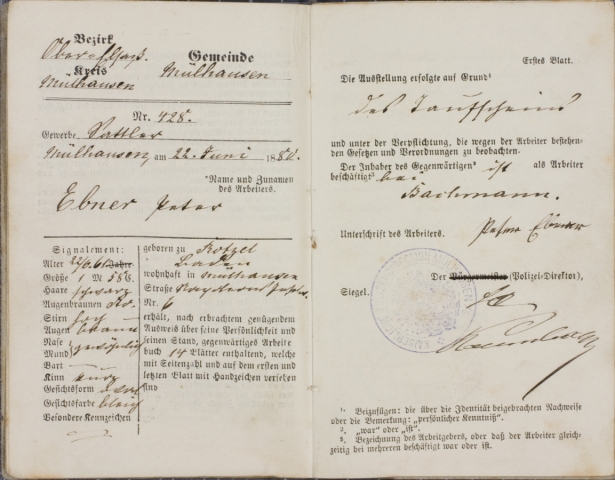 Bezirk
Ober-Elsaß.
Kreis
Mülhausen
Gemeinde
Mülhausen
Nr. 428.
Gewerbe Sattler
Mülhausen, am 22. Juni 188
*Name und Zunamen
des Arbeiters.
Ebner Peter
Signalement:
Alter Jahre
Größe 1 M 58 C.
Haare schwarz
Augenbraunen do.
Stirn hoch
Augen braun
Nase gewöhnlich
Mund
Bart —
Kinn rund
Gesichtsform oval
Gesichtsfarbe bleich
Besondere Kennzeichen
geboren zu
Baden
wohnhaft in Mülhausen
Straße
Nr. 6
erhält, nach erbrachtem genügendem
Ausweis über seine Persönlichkeit und
seinen Stand, gegenwärtiges Arbeits
buch 14 Blätter enthaltend, welche
mit Seitenzahl und auf dem ersten und
letzten Blatt mit Handzeichen versehen
sind
Erstes Blatt.
Die Ausstellung erfolgte auf Grund¹
des Taufscheins
und unter der Verpflichtung, die wegen der Arbeiter bestehen-
den Gesetzen und Verordnungen zu beobachten.
Der Inhaber des Gegenwärtigen² ist als Arbeiter
beschäftigt³ bei
Bachmann.
Unterschrift des Arbeiters. Peter Ebner
Der Bürgermeister (Polizei-Direktor),
Siegel.
¹. Beizufügen: die über die Identität beigebrachten Nachweise
oder die Bemerkung: „persönlicher Kenntniß“.
². „war“ oder „ist“.
³. Bezeichnung des Arbeitgebers, oder daß der Arbeiter gleich-
zeitig bei mehreren beschäftigt war oder ist.